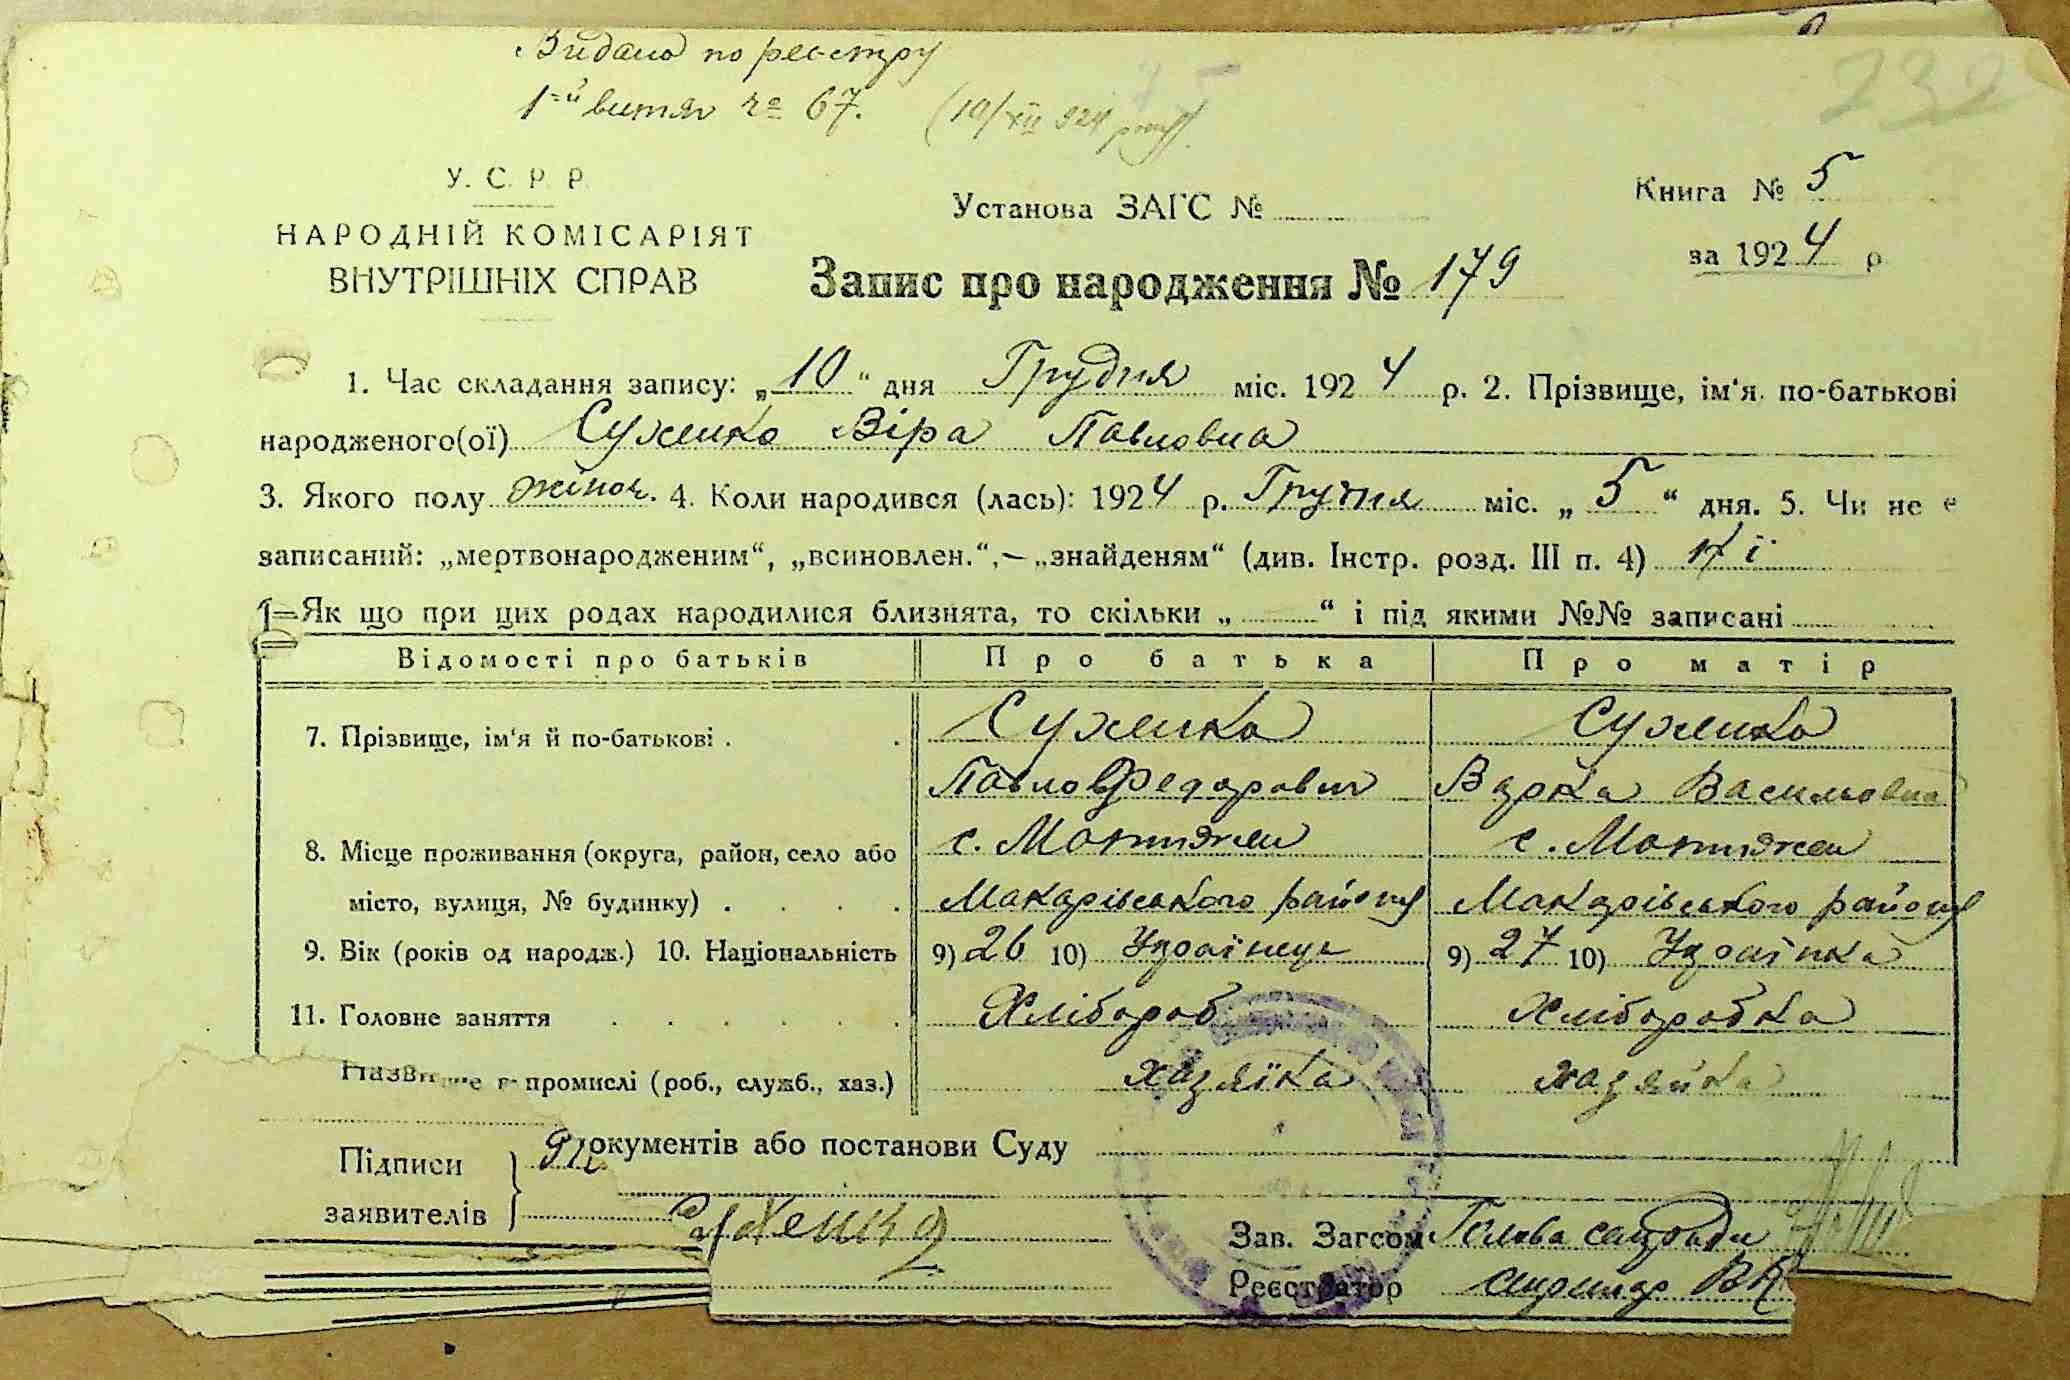 Видано по реєстру
1-й витяг № 67. (10/XII 924 року)
232
У. С. Р. Р.
НАРОДНІЙ КОМІСАРІЯТ
ВНУТРІШНІХ СПРАВ
Установа ЗАГС №
Книга № 5
за 1924 р
Запис про народження № 179
1. Час складання запису: „10“ дня Грудня міс. 1924 р. 2. Прізвище, ім‘я. по-батькові
народженого(ої) Сухенко Віра Павловна
3. Якого полу жіноч. 4. Коли народився (лась): 1924 р. Грудня міс. „5“ дня. 5. Чи не є
записаний: „мертвонародженим“, „всиновлен.“,— „знайденям“ (див. Інстр. розд. III п. 4) Нї
Як що при цих родах народилися близнята, то скільки „ “ і під якими №№ записані
Відомості про батьків Про батька Про матір
7. Прізвище, ім‘я й по-батькові . Сухенко Сухенко
Павло Федорович Варка Васильовна
8. Місце проживання (округа, район, село або с. Мотижен с. Мотижен
місто, вулиця, № будинку) Макарівського району Макарівського району
9. Вік (років од народж.) 10. Національність 9) 26 10) Українець 9) 27 10) Українка
11. Головне заняття Хлібороб Хліборобка
промислі (роб., служб., хаз.) хазяїка хазяйка
окументів або постанови Суду
Підписи
заявителів Сухенко
Зав. Загсом Голова сільради
Реєстратор секретар